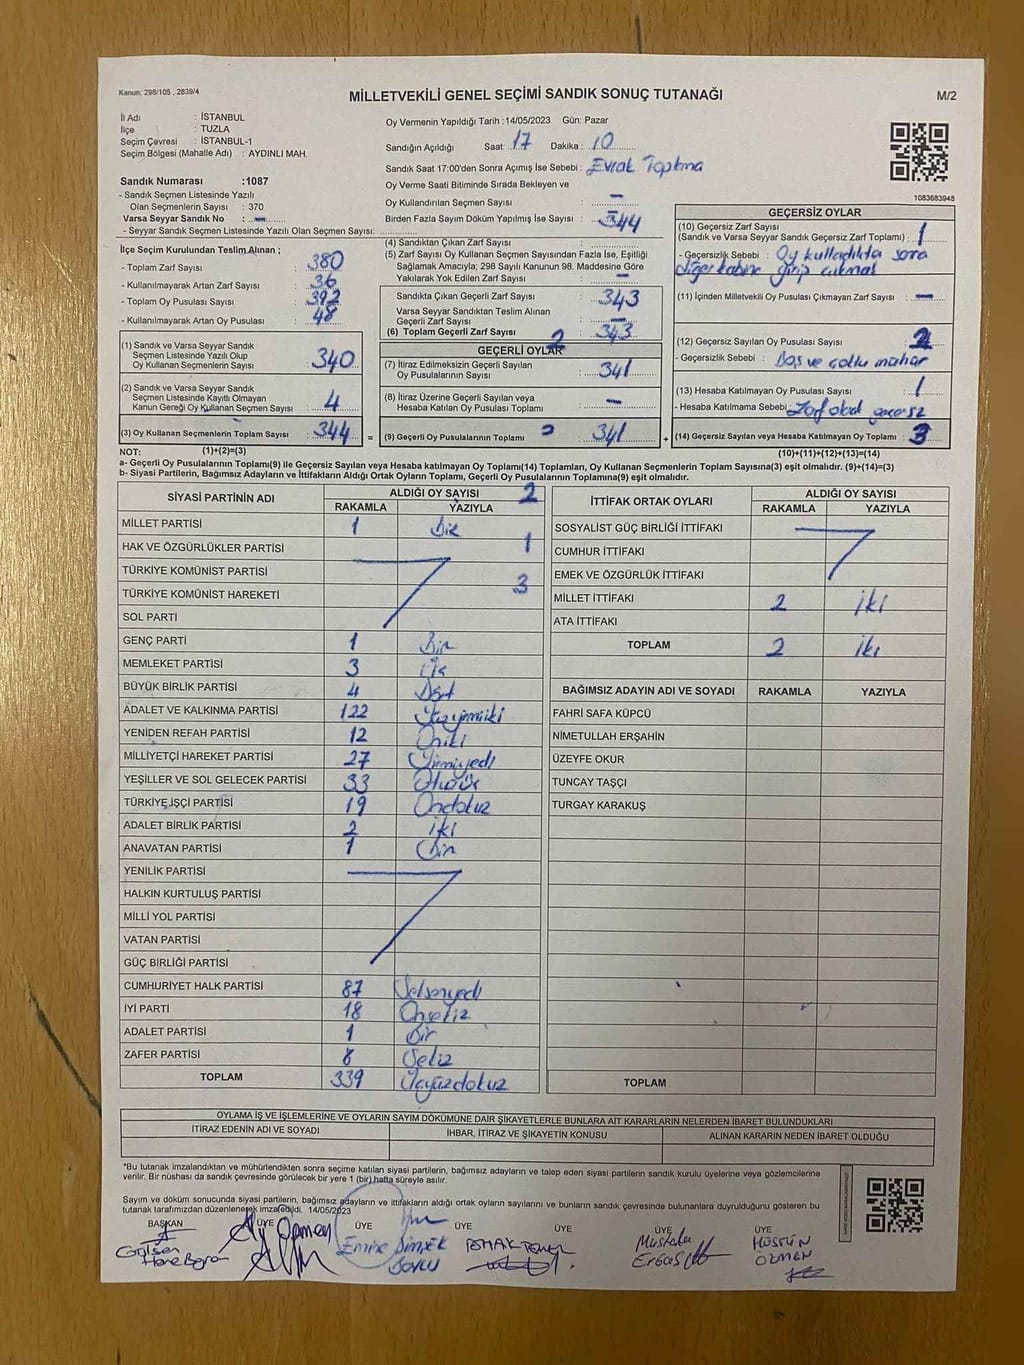 Kanun: 298/105 , 2839/4
MİLLETVEKİLİ GENEL SEÇİMİ SANDIK SONUÇ TUTANAĞI
M/2
İl Adı : İSTANBUL
İlçe : TUZLA
Seçim Çevresi : İSTANBUL-1
Seçim Bölgesi (Mahalle Adı) : AYDINLI MAH.
Oy Vermenin Yapıldığı Tarih :14/05/2023 Gün: Pazar
Sandığın Açıldığı Saat: 17 Dakika : 10
Sandık Saat 17:00'den Sonra Açımış İse Sebebi : Evrak Toplama
Oy Verme Saati Bitiminde Sırada Bekleyen ve
Oy Kullandırılan Seçmen Sayısı : -
Birden Fazla Sayım Döküm Yapılmış İse Sayısı : -
1083683948
Sandık Numarası :1087
- Sandık Seçmen Listesinde Yazılı
Olan Seçmenlerin Sayısı : 370
Varsa Seyyar Sandık No : -
- Seyyar Sandık Seçmen Listesinde Yazılı Olan Seçmen Sayısı:
İlçe Seçim Kurulundan Teslim Alınan ;
- Toplam Zarf Sayısı : 380
- Kullanılmayarak Artan Zarf Sayısı : 36
- Toplam Oy Pusulası Sayısı : 392
- Kullanılmayarak Artan Oy Pusulası : 48
(1) Sandık ve Varsa Seyyar Sandık
Seçmen Listesinde Yazılı Olup
Oy Kullanan Seçmenlerin Sayısı : 340
(2) Sandık ve Varsa Seyyar Sandık
Seçmen Listesinde Kayıtlı Olmayan
Kanun Gereği Oy Kullanan Seçmen Sayısı : 4
(3) Oy Kullanan Seçmenlerin Toplam Sayısı : 344 =
(4) Sandıktan Çıkan Zarf Sayısı : 344
(5) Zarf Sayısı Oy Kullanan Seçmen Sayısından Fazla İse, Eşitliği
Sağlamak Amacıyla; 298 Sayılı Kanunun 98. Maddesine Göre
Yakılarak Yok Edilen Zarf Sayısı : -
Sandıkta Çıkan Geçerli Zarf Sayısı : 343
Varsa Seyyar Sandıktan Teslim Alınan
Geçerli Zarf Sayısı : -
(6) Toplam Geçerli Zarf Sayısı : 343
2
GEÇERLİ OYLAR
(7) İtiraz Edilmeksizin Geçerli Sayılan
Oy Pusulalarının Sayısı : 341
(8) İtiraz Üzerine Geçerli Sayılan veya
Hesaba Katılan Oy Pusulası Toplamı : -
(9) Geçerli Oy Pusulalarının Toplamı : 341 +
GEÇERSİZ OYLAR
(10) Geçersiz Zarf Sayısı
(Sandık ve Varsa Seyyar Sandık Geçersiz Zarf Toplamı) : 1
- Geçersizlik Sebebi : Oy kulladıkta sora
diğer kabine girip çıkması
(11) İçinden Milletvekili Oy Pusulası Çıkmayan Zarf Sayısı : -
(12) Geçersiz Sayılan Oy Pusulası Sayısı : 2
- Geçersizlik Sebebi : Boş ve çoklu mühür
(13) Hesaba Katılmayan Oy Pusulası Sayısı : 1
- Hesaba Katılmama Sebebi : Zarf olarak geçersiz
(14) Geçersiz Sayılan veya Hesaba Katılmayan Oy Toplamı : 3
NOT: (1)+(2)=(3)
(10)+(11)+(12)+(13)=(14)
a- Geçerli Oy Pusulalarının Toplamı(9) ile Geçersiz Sayılan veya Hesaba katılmayan Oy Toplamı(14) Toplamları, Oy Kullanan Seçmenlerin Toplam Sayısına(3) eşit olmalıdır. (9)+(14)=(3)
b- Siyasi Partilerin, Bağımsız Adayların ve İttifakların Aldığı Ortak Oyların Toplamı, Geçerli Oy Pusulalarının Toplamına(9) eşit olmalıdır.
SİYASİ PARTİNİN ADI ALDIĞI OY SAYISI 2
RAKAMLA YAZIYLA
MİLLET PARTİSİ 1 Bir
HAK VE ÖZGÜRLÜKLER PARTİSİ 1
TÜRKİYE KOMÜNİST PARTİSİ
TÜRKİYE KOMÜNİST HAREKETİ 3
SOL PARTİ
GENÇ PARTİ 1 Bir
MEMLEKET PARTİSİ 3 Üç
BÜYÜK BİRLİK PARTİSİ 4 Dört
ADALET VE KALKINMA PARTİSİ 122 Yüzyirmiiki
YENİDEN REFAH PARTİSİ 12 Oniki
MİLLİYETÇİ HAREKET PARTİSİ 27 Yirmiyedi
YEŞİLLER VE SOL GELECEK PARTİSİ 33 Otuzüç
TÜRKİYE İŞÇİ PARTİSİ 19 Ondokuz
ADALET BİRLİK PARTİSİ 2 İki
ANAVATAN PARTİSİ 1 Bir
YENİLİK PARTİSİ
HALKIN KURTULUŞ PARTİSİ
MİLLİ YOL PARTİSİ
VATAN PARTİSİ
GÜÇ BİRLİĞİ PARTİSİ
CUMHURİYET HALK PARTİSİ 87 Seksenyedi
İYİ PARTİ 18 Onsekiz
ADALET PARTİSİ 1 Bir
ZAFER PARTİSİ 8 Sekiz
TOPLAM 339 Üçyüzdokuz
İTTİFAK ORTAK OYLARI ALDIĞI OY SAYISI
RAKAMLA YAZIYLA
SOSYALİST GÜÇ BİRLİĞİ İTTİFAKI
CUMHUR İTTİFAKI
EMEK VE ÖZGÜRLÜK İTTİFAKI
MİLLET İTTİFAKI 2 İki
ATA İTTİFAKI
TOPLAM 2 İki
BAĞIMSIZ ADAYIN ADI VE SOYADI RAKAMLA YAZIYLA
FAHRİ SAFA KÜPCÜ
NİMETULLAH ERŞAHİN
ÜZEYFE OKUR
TUNCAY TAŞÇI
TURGAY KARAKUŞ
TOPLAM
OYLAMA İŞ VE İŞLEMLERİNE VE OYLARIN SAYIM DÖKÜMÜNE DAİR ŞİKAYETLERLE BUNLARA AİT KARARLARIN NELERDEN İBARET BULUNDUKLARI
İTİRAZ EDENİN ADI VE SOYADI İHBAR, İTİRAZ VE ŞİKAYETİN KONUSU ALINAN KARARIN NEDEN İBARET OLDUĞU
*Bu tutanak imzalandıktan ve mühürlendikten sonra seçime katılan siyasi partilerin, bağımsız adayların ve talep eden siyasi partilerin sandık kurulu üyelerine veya gözlemcilerine
verilir. Bir nüshası da sandık çevresinde görülecek bir yere 1 (bir) hafta süreyle asılır.
Sayım ve döküm sonucunda siyasi partilerin, bağımsız adayların ve ittifakların aldığı ortak oyların sayılarını ve bunların sandık çevresinde bulunanlara duyrulduğunu gösteren bu
tutanak tarafımızdan düzenlenerek imza edildi. 14/05/2023
BAŞKAN ÜYE ÜYE ÜYE ÜYE ÜYE ÜYE
Gülsen
Emine Şimşek
Mustafa
Erbaş
HÜSNÜN
ÖZMEN